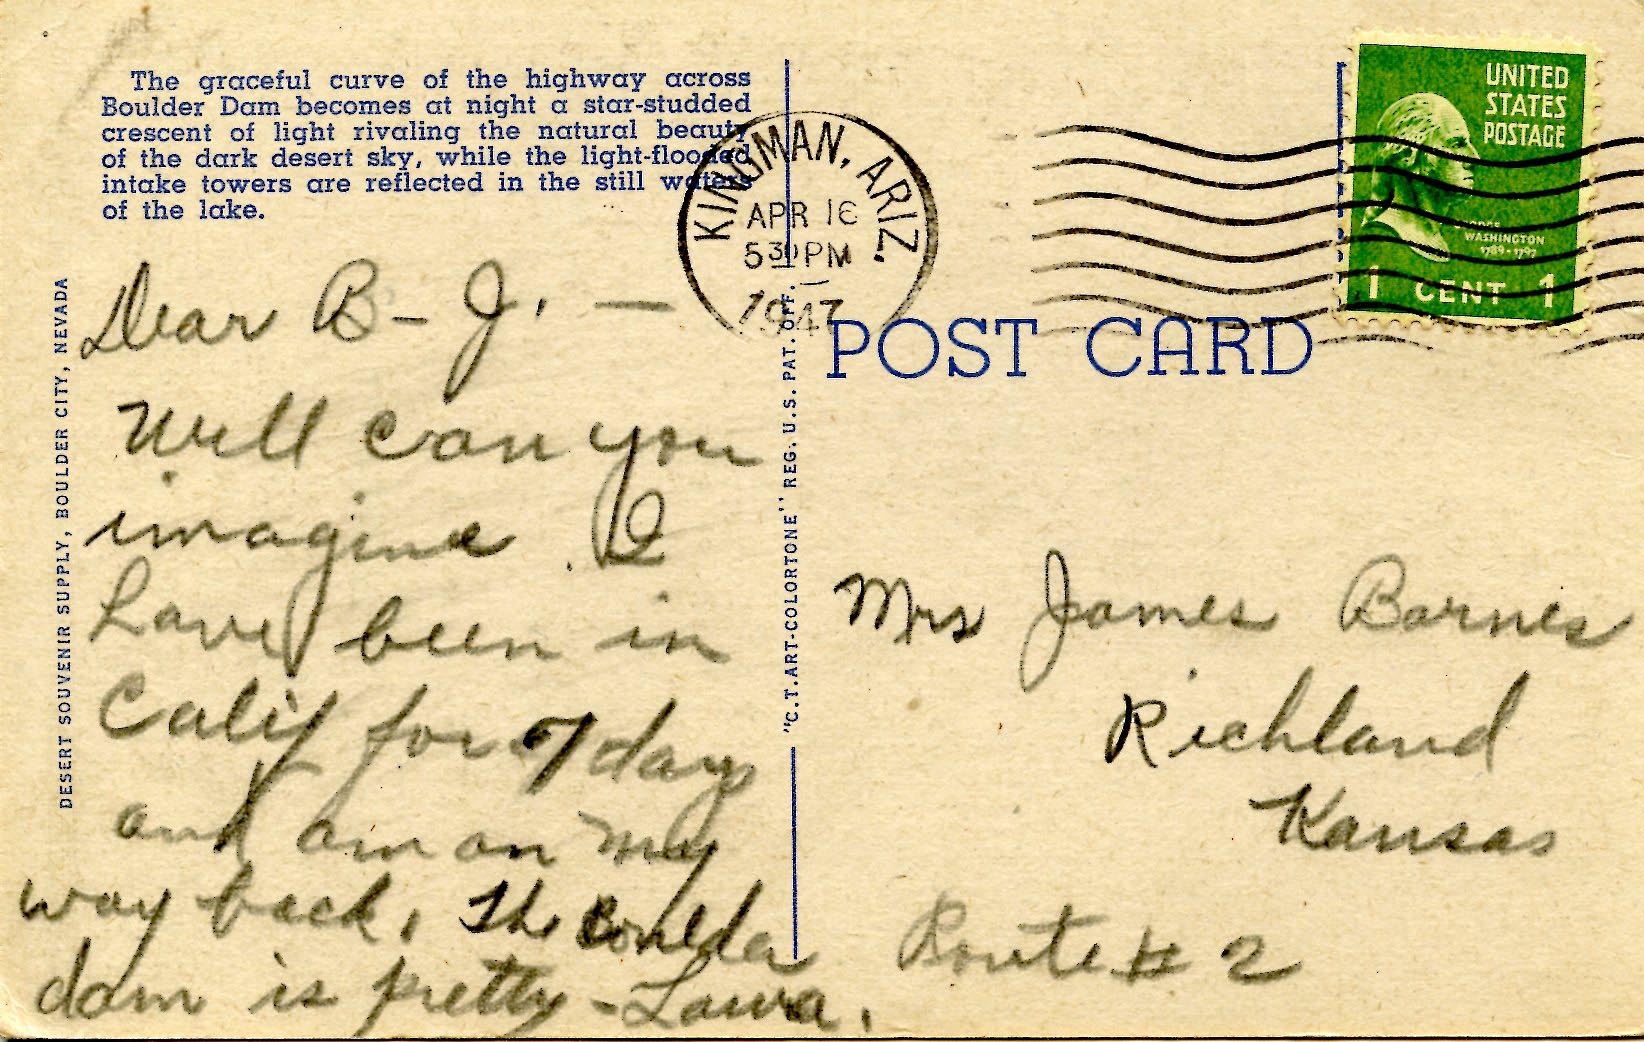 The graceful curve of the highway across
Boulder Dam becomes at night a star-studded
crescent of light rivaling the natural beauty
of the dark desert sky, while the light-flooded
intake towers are reflected in the still waters
of the lake.
DESERT SOUVENIR SUPPLY, BOULDER CITY, NEVADA
Dear B-J. —
Well can you
imagine I
have been in
Calif for 7 days
and am on my
way back. The Boulder
dam is pretty - Laura.
"C.T. ART-COLORTONE" REG. U.S. PAT. OFF.
KINGMAN, ARIZ.
APR
530 PM
1947
UNITED
STATES
POSTAGE
GEORGE
WASHINGTON
1789-1797
1 CENT 1
POST CARD
Mrs James Barnes
Richland
Kansas
Route # 2